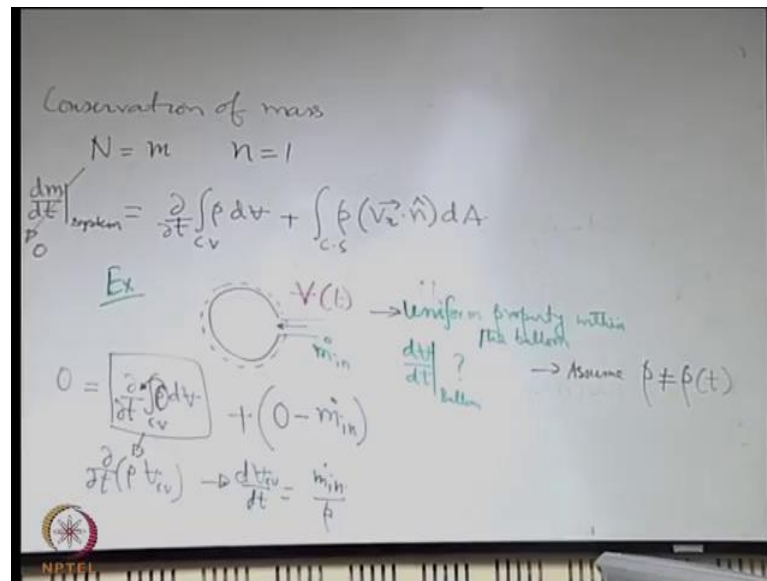 Conservation of mass
N = m    n = 1
dm/dt|system = ∂/∂t ∫_{CV} ρ dV + ∫_{C.S} ρ (V⃗r · n̂) dA
0
Ex
V(t) → Uniform property within the balloon
ṁin
dV/dt|Balloon ? → Assume ρ ≠ ρ(t)
0 = ∂/∂t ∫_{CV} ρ dV + (0 − ṁin)
∂/∂t (ρ V_{CV}) → dV_{CV}/dt = ṁin/ρ
NPTEL